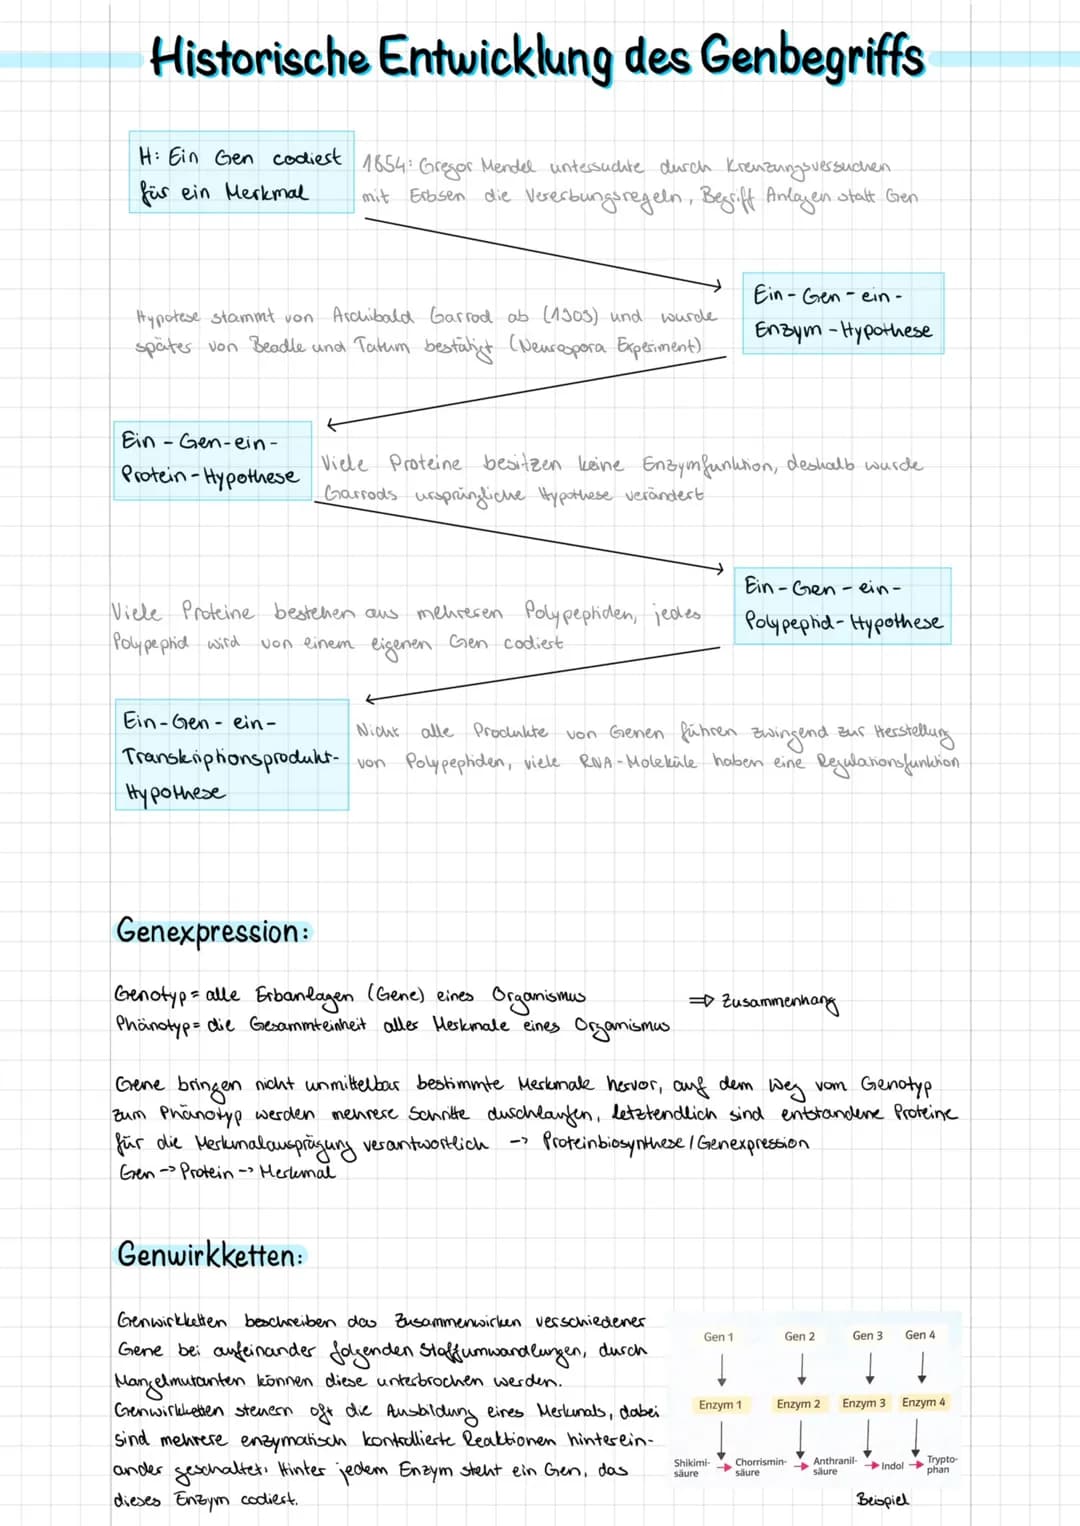 Historische Entwicklung des Genbegriffs
H: Ein Gen codiert
für ein Merkmal
1854: Gregor Mendel untersuchte durch Kreuzungsversuchen
mit Erbsen die Vererbungsregeln, Begriff Anlagen statt Gen
Ein-Gen-ein-
Enzym-Hypothese
Hypotese stammt von Archibald Garrod ab (1909) und wurde
später von Beadle und Tatum bestätigt (Neurospora Experiment)
Ein-Gen-ein-
Protein-Hypothese
Viele Proteine besitzen keine Enzymfunktion, deshalb wurde
Garrods ursprüngliche Hypothese verändert
Ein-Gen-ein-
Polypeptid-Hypothese
Viele Proteine bestehen aus mehreren Polypeptiden, jedes
Polypeptid wird von einem eigenen Gen codiert
Ein-Gen-ein-
Transkriptionsprodukt-
Hypothese
Nicht alle Produkte von Genen führen zwingend zur Herstellung
von Polypeptiden, viele RNA-Moleküle haben eine Regulationsfunktion
Genexpression:
Genotyp = alle Erbanlagen (Gene) eines Organismus
Phänotyp = die Gesammteinheit aller Merkmale eines Organismus
⇒ Zusammenhang
Gene bringen nicht unmittelbar bestimmte Merkmale hervor, auf dem Weg vom Genotyp
zum Phänotyp werden mehrere Schritte durchlaufen, letztendlich sind entstandene Proteine
für die Merkmalausprägung verantwortlich -> Proteinbiosynthese / Genexpression
Gen -> Protein -> Merkmal
Genwirkketten:
Genwirkketten beschreiben das Zusammenwirken verschiedener
Gene bei aufeinander folgenden Stoffumwandlungen, durch
Mangelmutanten können diese unterbrochen werden.
Genwirkketten steuern oft die Ausbildung eines Merkmals, dabei
sind mehrere enzymatisch kontrollierte Reaktionen hinterein-
ander geschaltet. Hinter jedem Enzym steht ein Gen, das
dieses Enzym codiert.
Gen 1 Gen 2 Gen 3 Gen 4
Enzym 1 Enzym 2 Enzym 3 Enzym 4
Shikimi-
säure
Chorrismin-
säure
Anthranil-
säure
Indol
Trypto-
phan
Beispiel